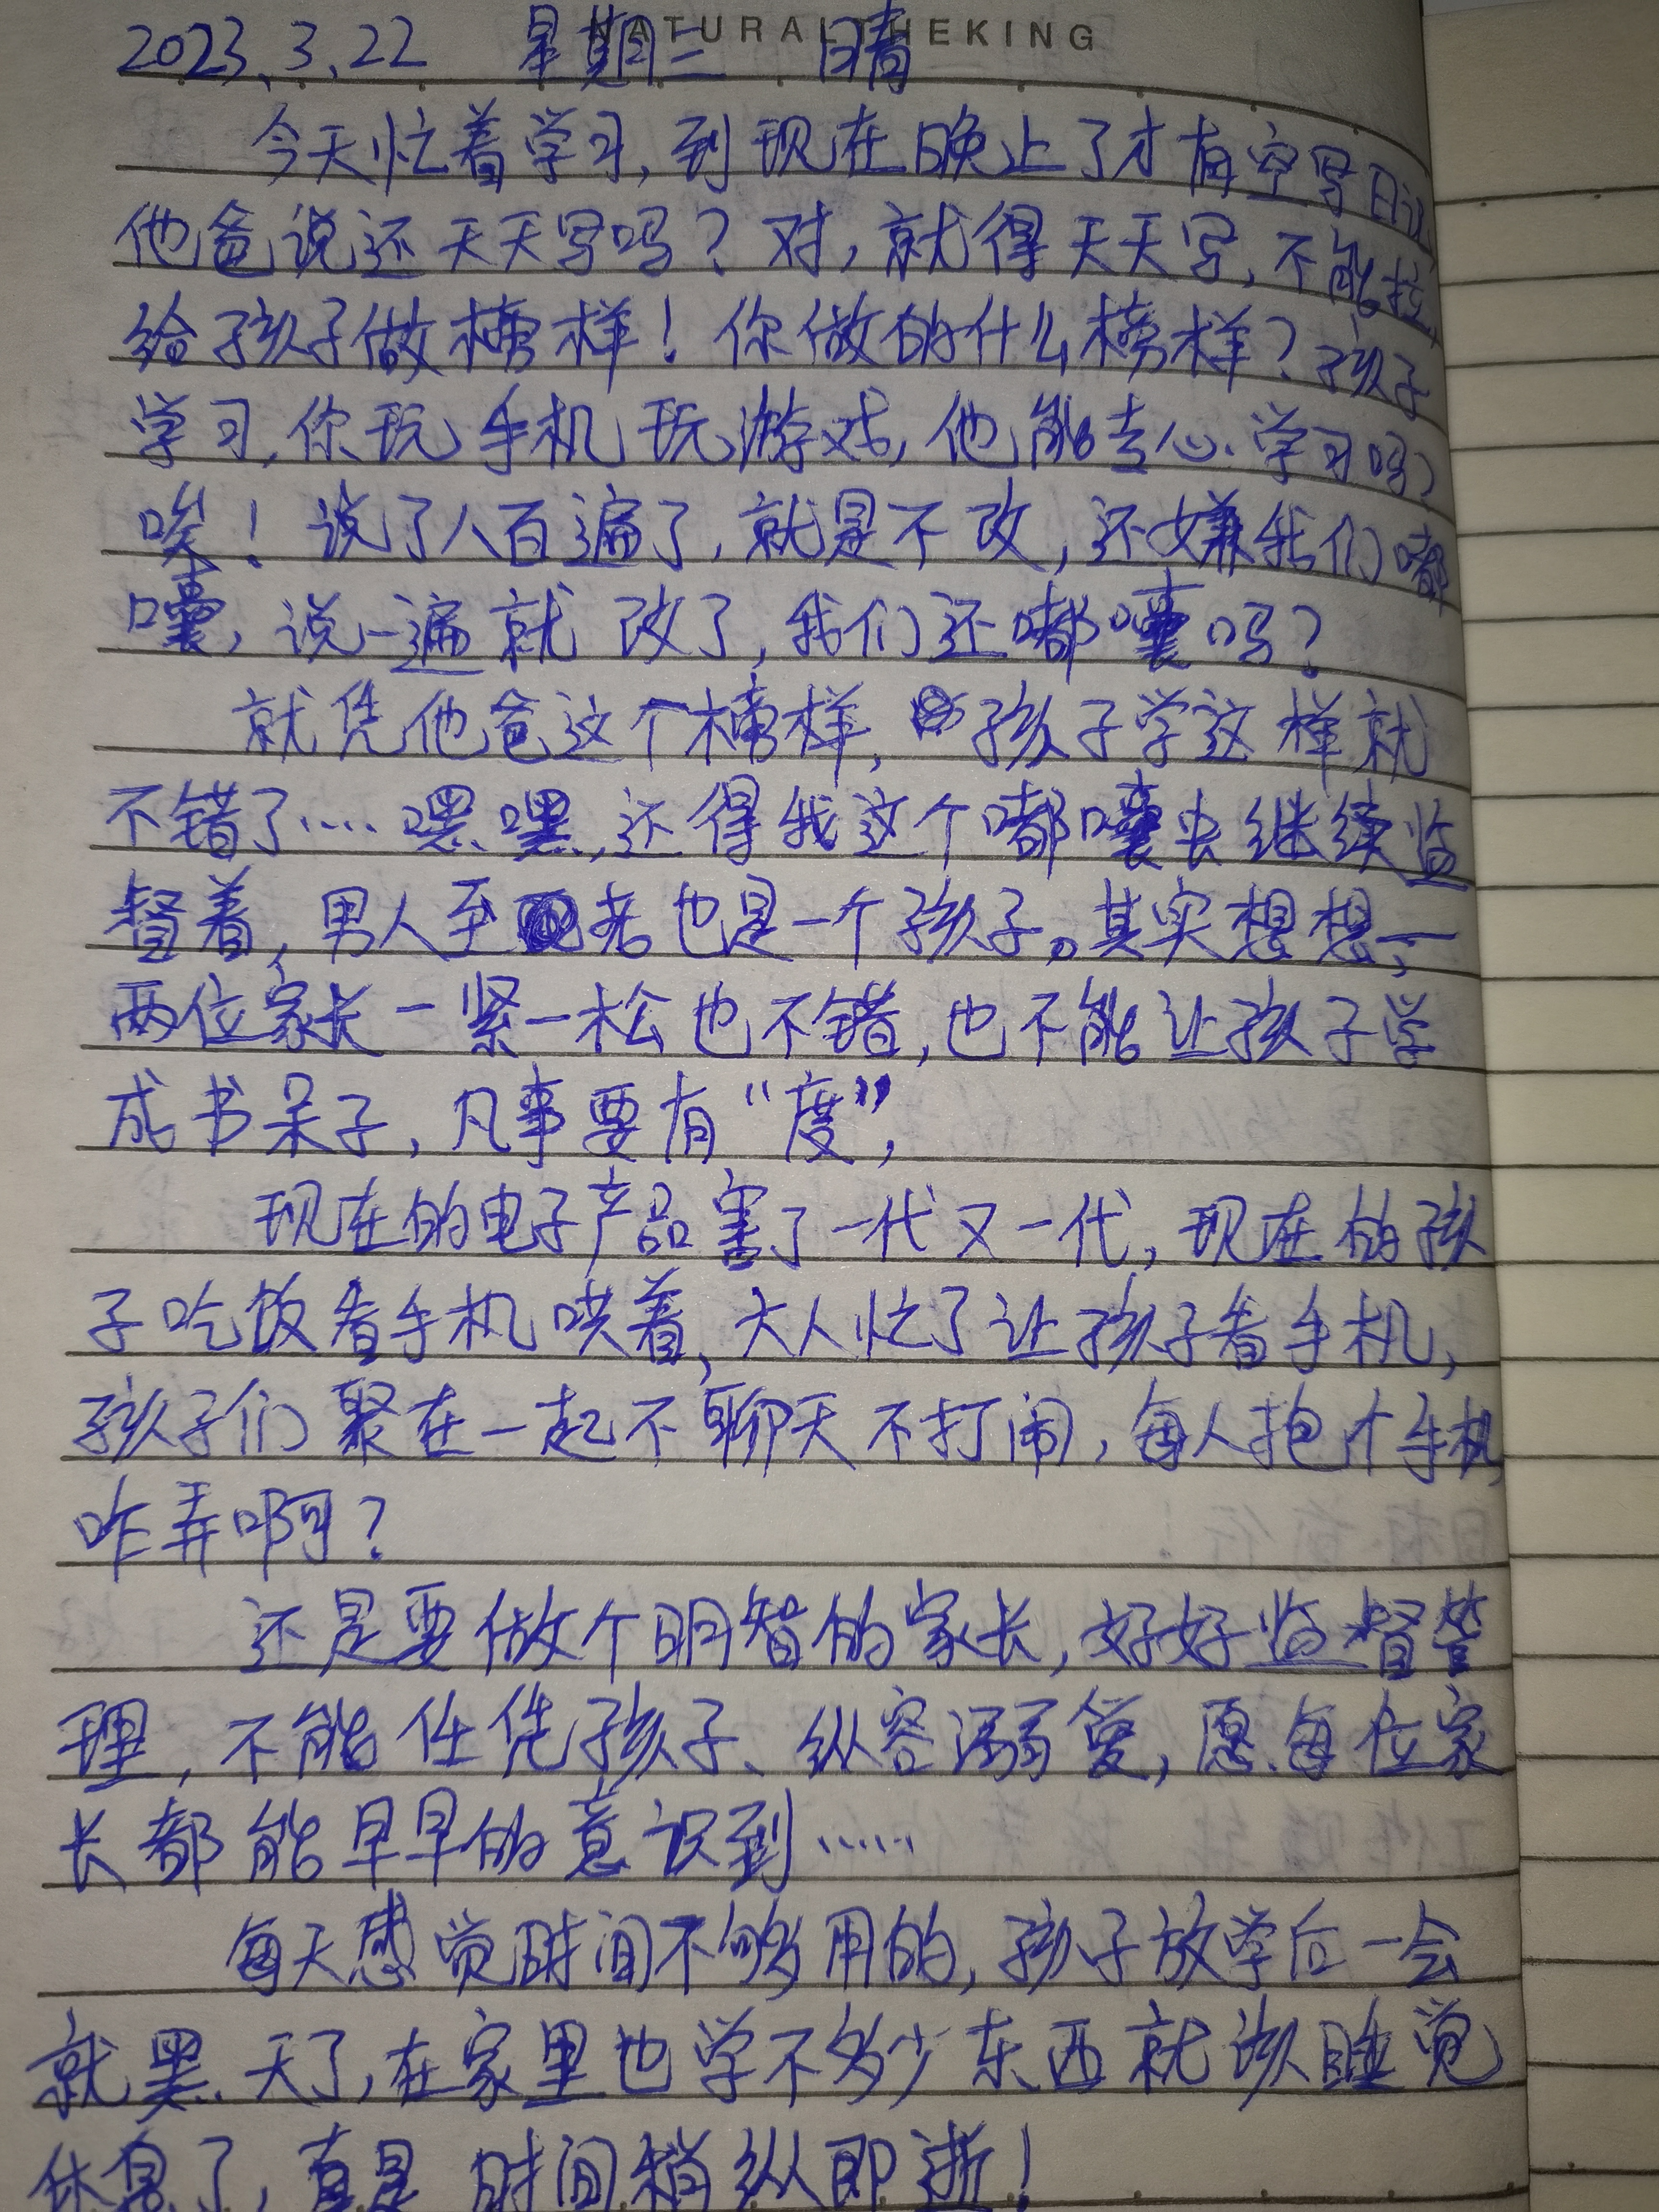 NATURALTHEKING
2023.3.22 星期三 晴
今天忙着学习,到现在晚上了才有空写日记
他爸说还天天写吗?对,就得天天写,不能拉,
给孩子做榜样!你做的什么榜样?孩子
学习,你玩手机玩游戏,他能专心学习吗?
唉!说了八百遍了,就是不改,还嫌我们嘟
囔,说一遍就改了,我们还嘟囔吗?
就凭他爸这个榜样,孩子学这样就
不错了……嘿嘿,还得我这个嘟囔虫继续监
督着,男人至老也是一个孩子。其实想想,一
两位家长一紧一松也不错,也不能让孩子学
成书呆子,凡事要有“度”,
现在的电子产品害了一代又一代,现在的孩
子吃饭看手机哄着,大人忙了让孩子看手机,
孩子们聚在一起不聊天不打闹,每人抱个手机
咋弄啊?
还是要做个明智的家长,好好监督管
理,不能任凭孩子、纵容溺爱,愿每位家
长都能早早的意识到……
每天感觉时间不够用的,孩子放学后一会
就黑天了,在家里也学不多少东西就该睡觉
休息了,真是时间稍纵即逝!